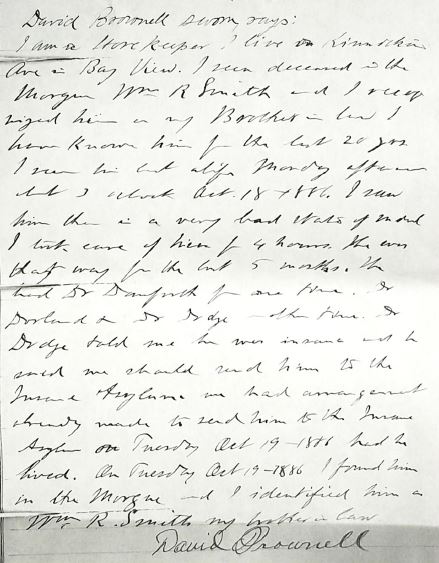 David Brownell sworn says:
I am a Storekeeper I live on Kinnickinnic
Ave in Bay View. I seen deceased in the
Morgue Wm R Smith and I recog
nized him as my Brother in law I
have Known him for the last 20 yrs
I seen him last alife Monday afternoon
abt 3 oclock Oct. 18-1886. I saw
him then in a very bad state of mind
I took care of him for 4 hours. He was
that way for the last 5 months. He
had Dr Danforth for one time. Dr
Dorland & Dr Dodge other time. Dr
Dodge told me he was insane and he
said we should send him to the
Insane Asylum we had arrangement
already made to send him to the Insane
Asylum on Tuesday Oct 19-1886 had he
lived. On Tuesday Oct 19-1886 I found him
in the Morgue and I identified him as
Wm R. Smith my brother in law
David Brownell